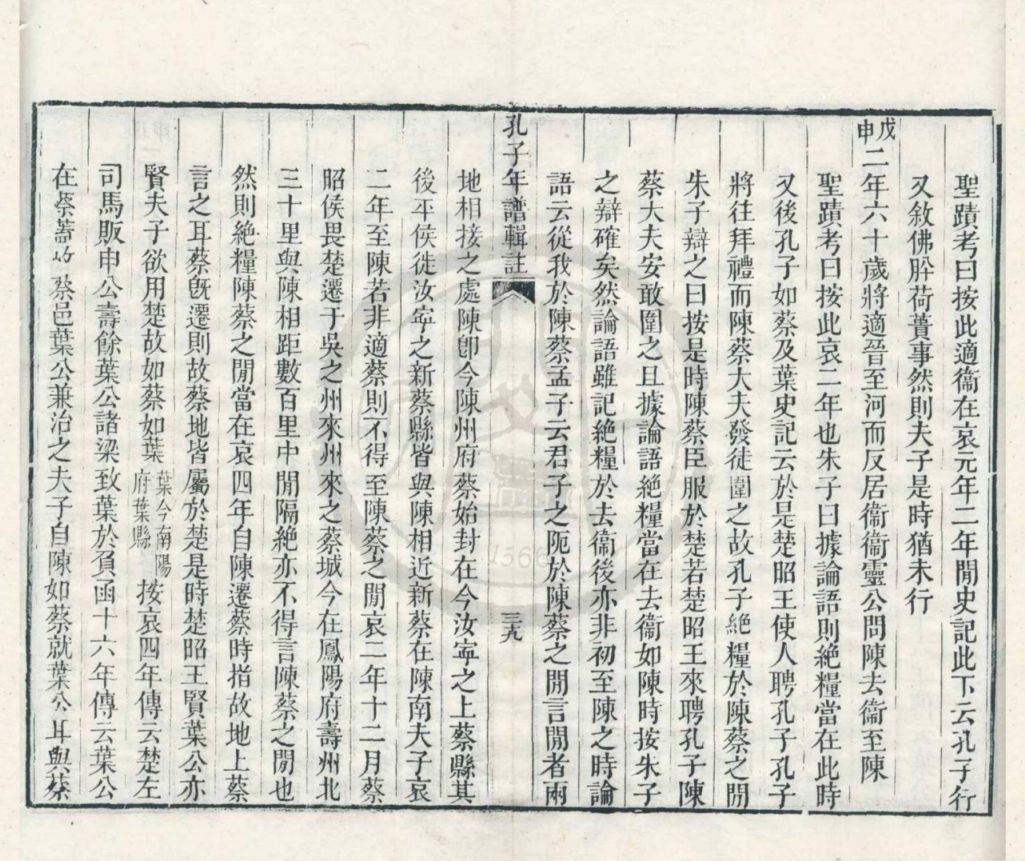 聖蹟考曰按此適衞在哀元年二年閒史記此下云孔子行
又敘佛肸荷蕢事然則夫子是時猶未行
戊申二年六十歲將適晉至河而反居衞衞靈公問陳去衞至陳
聖蹟考曰按此哀二年也朱子曰據論語則絶糧當在此時
又後孔子如蔡及葉史記云於是楚昭王使人聘孔子孔子
將往拜禮而陳蔡大夫發徒圍之故孔子絶糧於陳蔡之閒
朱子辯之曰按是時陳蔡臣服於楚若楚昭王來聘孔子陳
蔡大夫安敢圍之且據論語絶糧當在去衞如陳時按朱子
之辯確矣然論語雖記絶糧於去衞後亦非初至陳之時論
語云從我於陳蔡孟子云君子之阨於陳蔡之閒言閒者兩
孔子年譜輯註
三九
地相接之處陳卽今陳州府蔡始封在今汝寧之上蔡縣其
後平侯徙汝寧之新蔡縣皆與陳相近新蔡在陳南夫子哀
二年至陳若非適蔡則不得至陳蔡之閒哀二年十二月蔡
昭侯畏楚遷于吳之州來州來之蔡城今在鳳陽府壽州北
三十里與陳相距數百里中閒隔絶亦不得言陳蔡之閒也
然則絶糧陳蔡之閒當在哀四年自陳遷蔡時指故地上蔡
言之耳蔡旣遷則故蔡地皆屬於楚是時楚昭王賢葉公亦
賢夫子欲用楚故如蔡如葉葉今南陽府葉縣按哀四年傳云楚左
司馬眅申公壽餘葉公諸梁致蔡於負函十六年傳云葉公
在蔡蓋故蔡邑葉公兼治之夫子自陳如蔡就葉公耳與蔡
1568